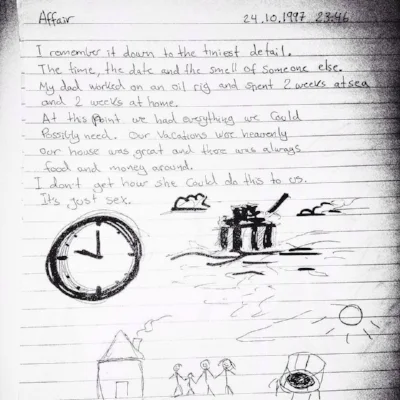 Affair 24.10.1997 23:46
I remember it down to the tiniest detail.
The time, the date and the smell of someone else.
My dad worked on an oil rig and spent 2 weeks at sea
and 2 weeks at home.
At this point we had everything we could
Possibly need. Our vacations wer heavenly
our house was great and there was always
food and money around.
I don't get how she could do this to us.
It's just sex.